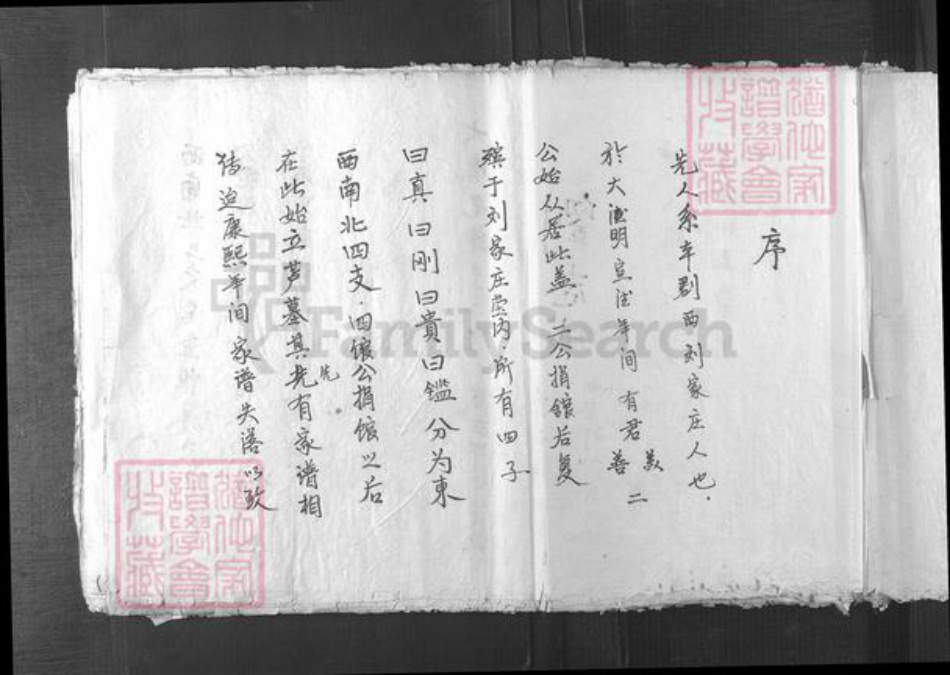 序
先人系车郡西刘家庄人也.
於大德明宣德年间有君美善二
公始从居此盖.二公捐舘后复
殡于刘家庄茔内.所有四子
曰真曰刚曰贵曰鑑分为東
西南北四支.四舘公捐舘以后
在此始立茔墓其先先有家谱相
传迨康熙年间家谱失落以致
猶他家譜學會收藏
猶他家譜學會收藏
FamilySearch